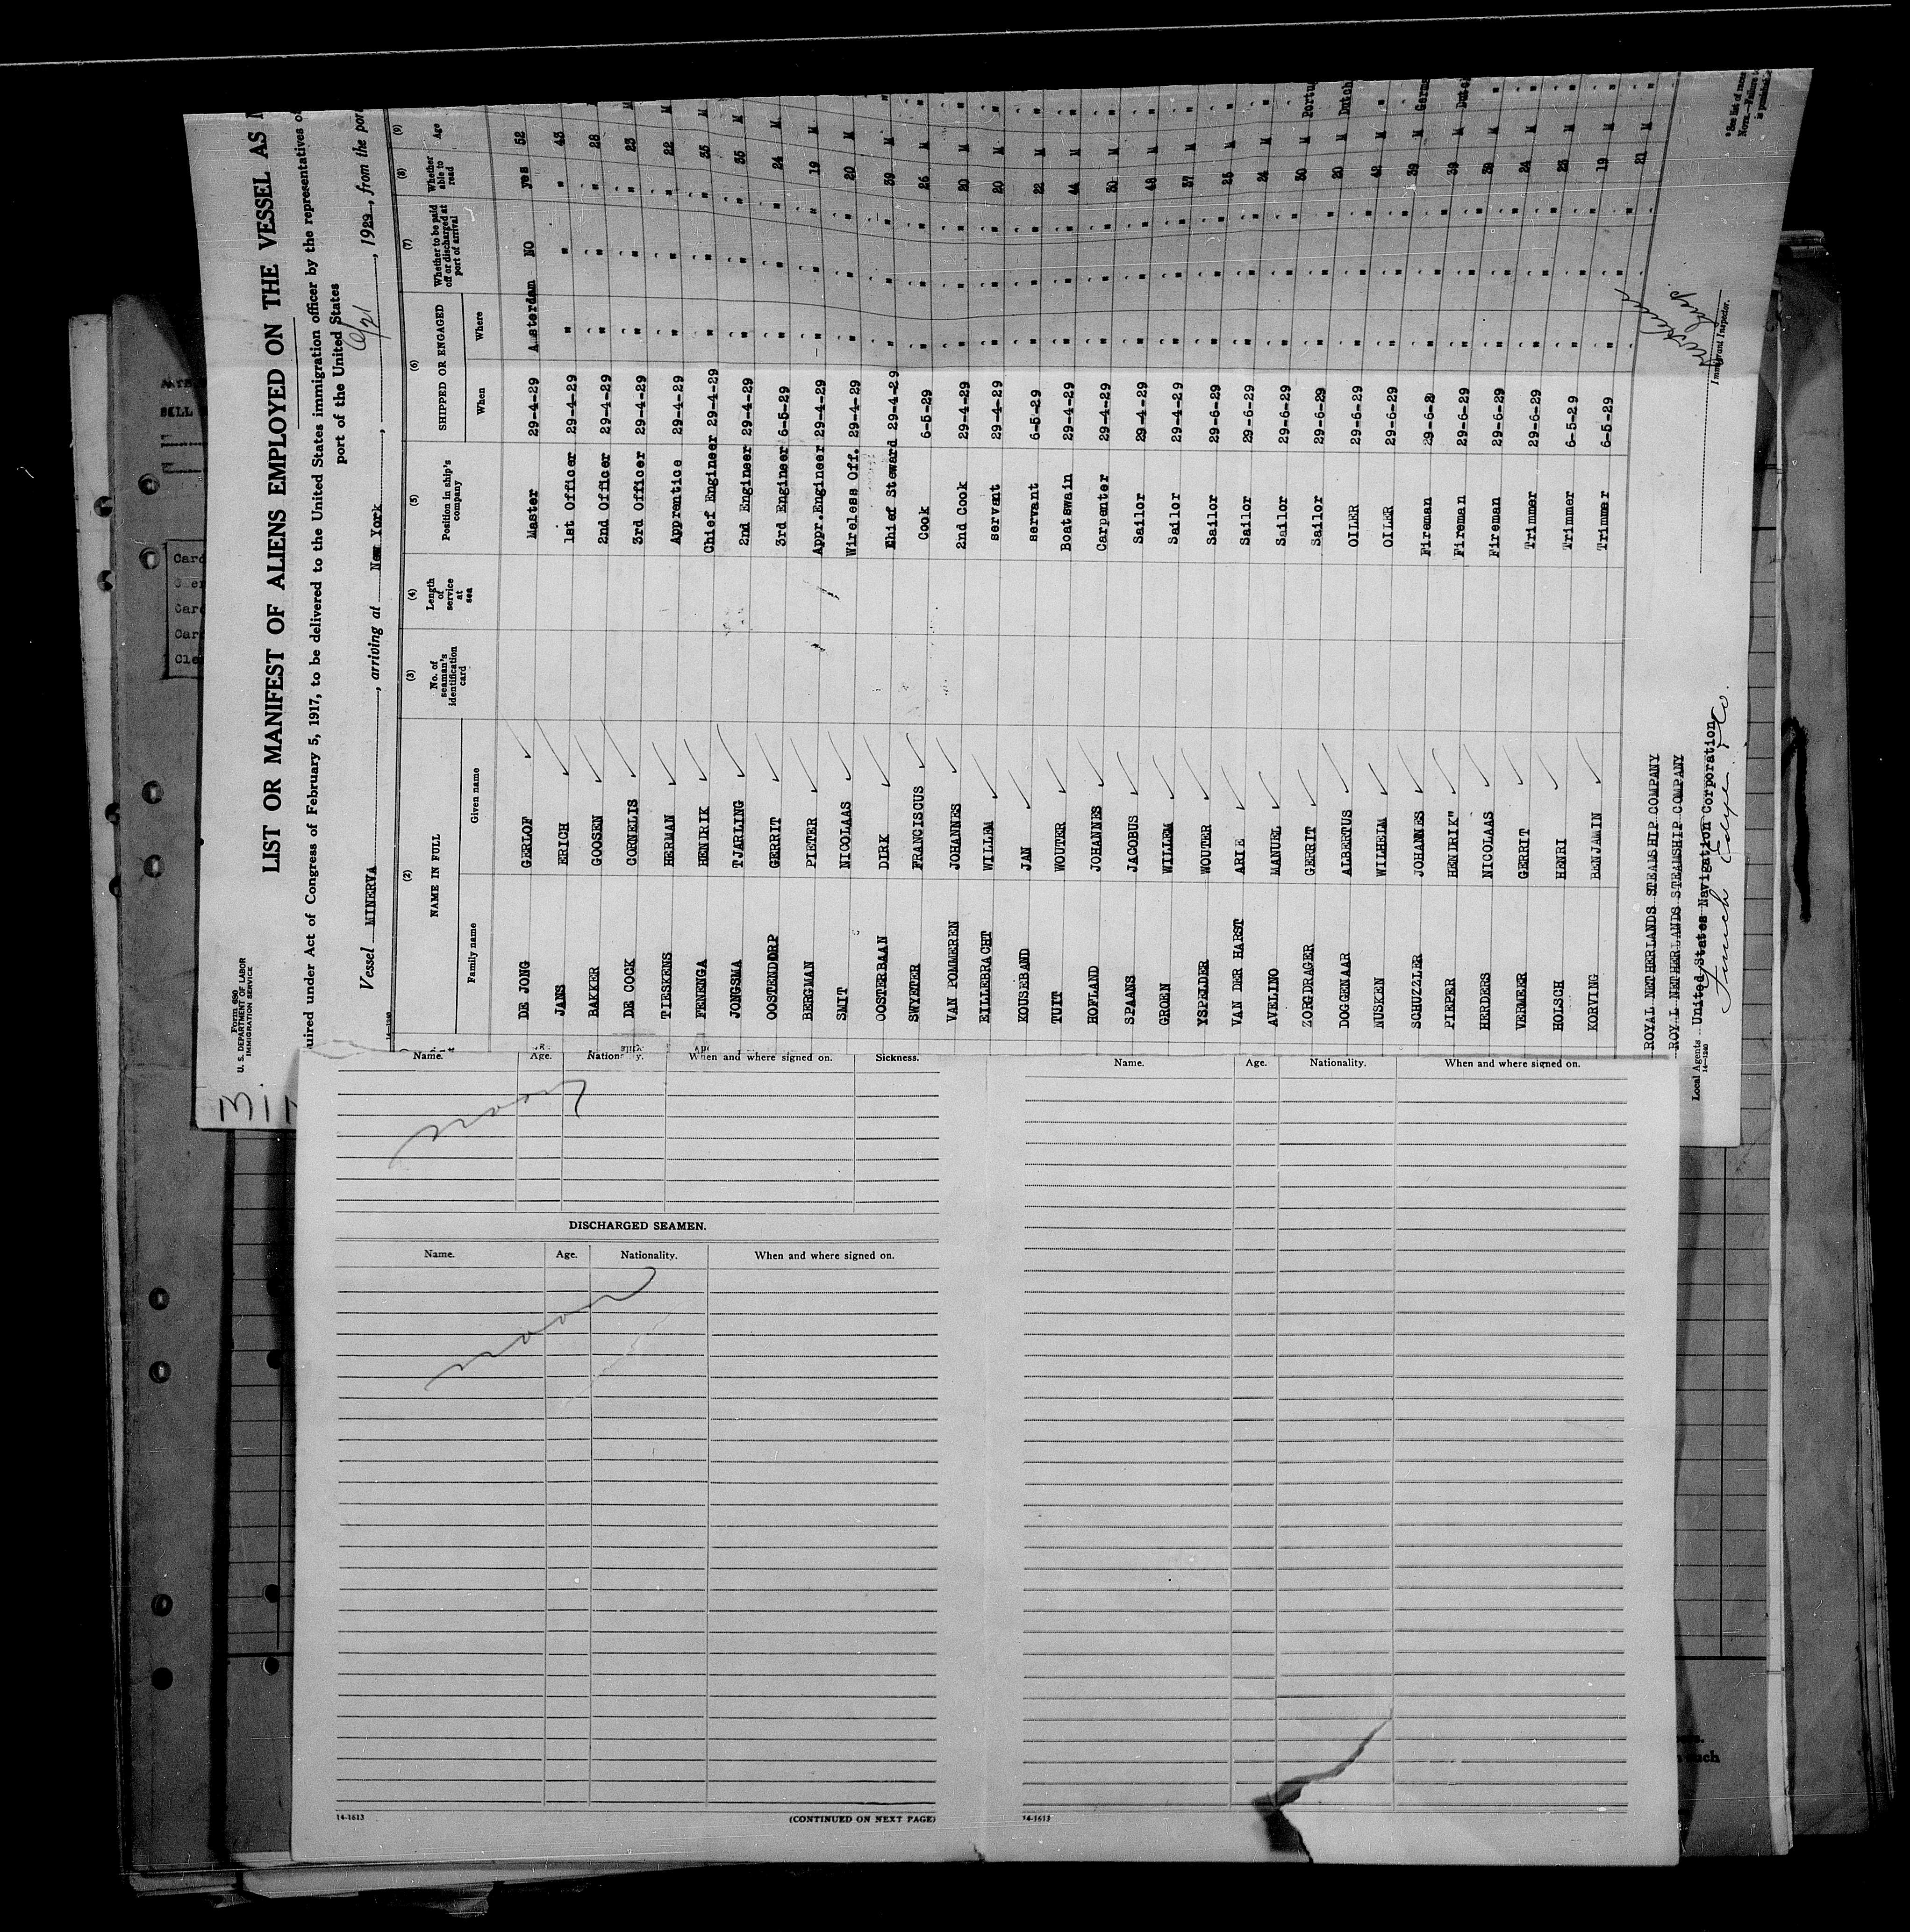 Form 680
U. S. DEPARTMENT OF LABOR
IMMIGRATION SERVICE
LIST OR MANIFEST OF ALIENS EMPLOYED ON THE VESSEL AS
uired under Act of Congress of February 5, 1917, to be delivered to the United States immigration officer by the representatives o
port of the United States
Vessel MINERVA, arriving at New York, 6/21, 1929, from the por
(2) (3) (4) (5) (6) (7) (8) (9)
NAME IN FULL No. of seaman's identification card Length of service at sea Position in ship's company SHIPPED OR ENGAGED Whether to be paid off or discharged at port of arrival Whether able to read Age
Family name Given name When Where
DE JONG GERLOF Master 29-4-29 Amsterdam NO yes 52
JANS ERICH 1st Officer 29-4-29 " " " 43
BAKKER GOOSEN 2nd Officer 29-4-29 " " " 28
DE COCK CORNELIS 3rd Officer 29-4-29 " " " 23 M
TIESKENS HERMAN Apprentice 29-4-29 " " " 22 M
FENENGA HENDRIK Chief Engineer 29-4-29 " " " 35 M
JONGSMA TJARLING 2nd Engineer 29-4-29 " " " 35 M
OOSTENDORP GERRIT 3rd Engineer 6-5-29 " " " 24 M
BERGMAN PIETER Appr.Engineer 29-4-29 " " " 19 M
SMIT NICOLAAS Wireless Off. 29-4-29 " " " 20 M
OOSTERBAAN DIRK Chief Steward 29-4-29 " " " 39 M "
SWYETER FRANCISCUS Cook 6-5-29 " " " 26 M "
VAN POMMEREN JOHANNES 2nd Cook 29-4-29 " " " 20 M "
EILLEBRACHT WILLEM servant 29-4-29 " " " 20 M "
KOUSEBAND JAN servant 6-5-29 " " " 22 M "
TUIT WOUTER Boatswain 29-4-29 " " " 44 M "
HOFLAND JOHANNES Carpenter 29-4-29 " " " 30 M "
SPAANS JACOBUS Sailor 29-4-29 " " " 48 M "
GROEN WILLEM Sailor 29-4-29 " " " 37 M "
YSPELDER WOUTER Sailor 29-6-29 " " " 25 M "
VAN DER HARST ARIE Sailor 29-6-29 " " " 24 M "
AVELINO MANUEL Sailor 29-6-29 " " " 30 M Portu
ZORGDRAGER GERRIT Sailor 29-6-29 " " " 20 M Dutch
DOGGENAAR ALBERTUS OILER 29-6-29 " " " 42 M "
NUSKEN WILHELM OILER 29-6-29 " " " 39 M Germa
SCHUZZLER JOHANNES Fireman 29-6-29 " " " 39 M Dutch
PIEPER HENDRIK" Fireman 29-6-29 " " " 39 M "
HERDERS NICOLAAS Fireman 29-6-29 " " " 24 M "
VERMEER GERRIT Trimmer 29-6-29 " " " 23 M "
HOLSCH HENRI Trimmer 6-5-29 " " " 19 M "
KORVING BENJAMIN Trimmer 6-5-29 " " " 21 M "
ROYAL NETHERLANDS STEAMSHIP COMPANY
ROYAL NETHERLANDS STEAMSHIP COMPANY
Local Agents United States Navigation Corporation
Funch Edye & Co.
14-1240
Immigrant Inspector.
* See list of races
NOTE.—Failure to
is punishable
Name. Age. Nationality. When and where signed on. Sickness.
DISCHARGED SEAMEN.
Name. Age. Nationality. When and where signed on.
14-1613 (CONTINUED ON NEXT PAGE)
Name. Age. Nationality. When and where signed on.
14-1613